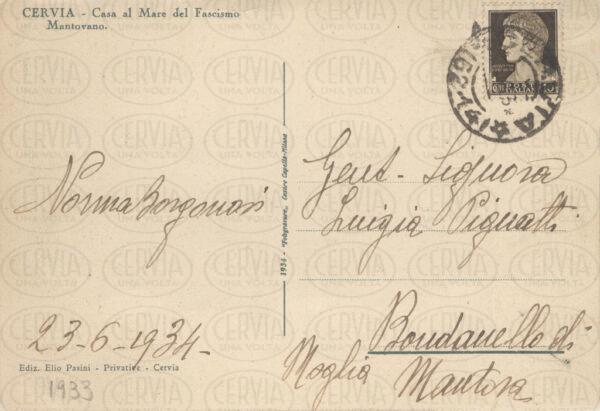 CERVIA - Casa al Mare del Fascismo
Mantovano.
POSTE ITALIANE
Gent. Signora
Luigia Pignatti
Norma Borgonovi
1934 - "Fotogravure, Cesare Capello-Milano
Bondanello di
Moglia Mantova
23-6-1934-
Ediz. Elio Pasini - Privative - Cervia
1933
CERVIA
UNA VOLTA